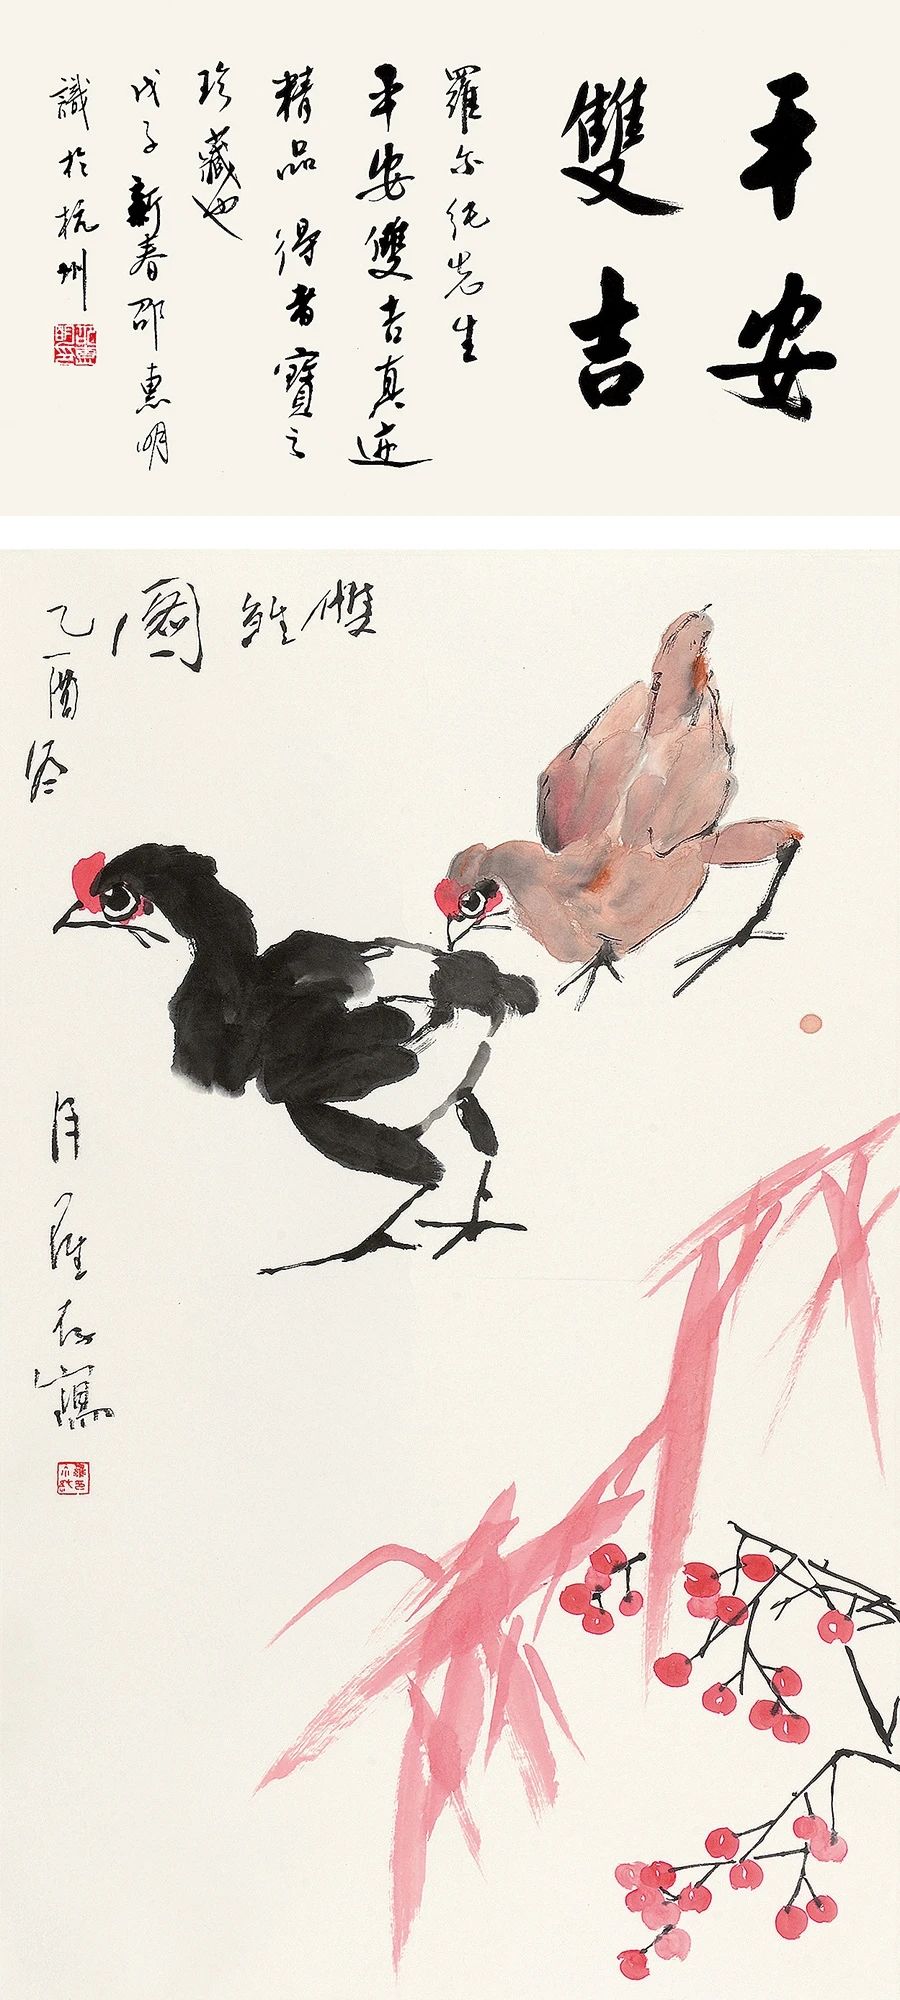 平安
雙吉
羅尔純先生
平安雙吉真迹
精品得者寶之
珍藏也
戊子新春邵惠明
識於杭州
雙雏圖
乙酉冬
月羅
寫